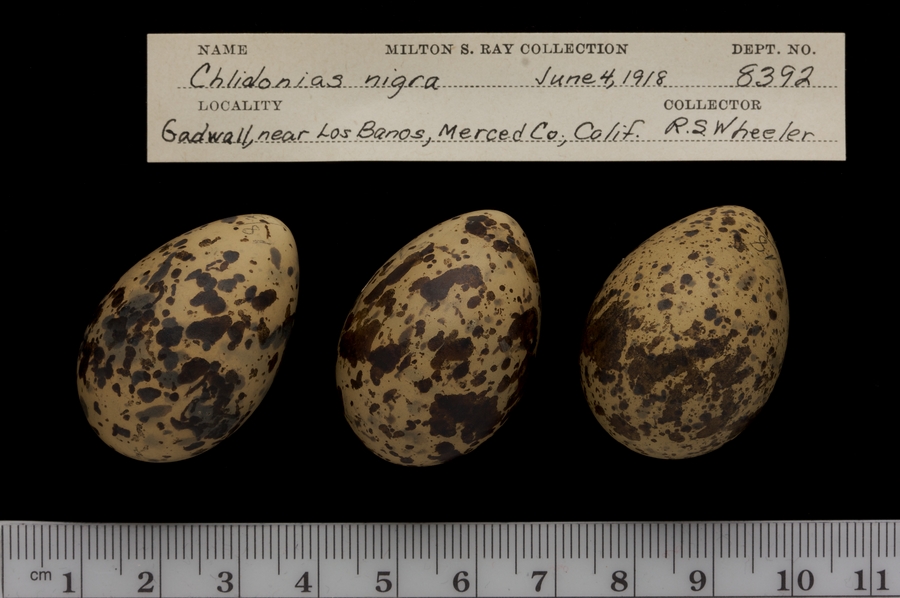 NAME MILTON S. RAY COLLECTION DEPT. NO.
Chlidonias nigra June 4, 1918 8392
LOCALITY COLLECTOR
Gadwall, near Los Banos, Merced Co., Calif. R.S. Wheeler
cm 1 2 3 4 5 6 7 8 9 10 11